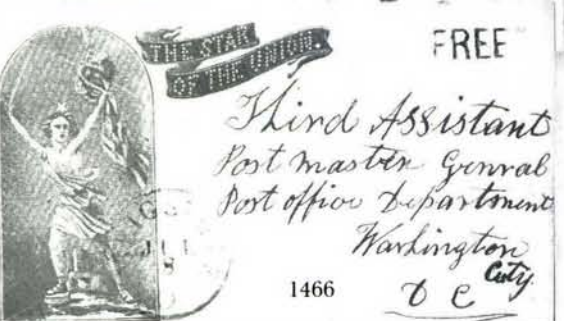 THE STAR
OF THE UNION.
FREE
Third Assistant
Post master Genral
Post office Department
Washington
City
D C
1466